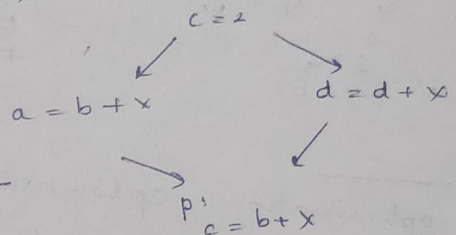 c = 2
a = b + x
d = d + x
p'
c = b + x